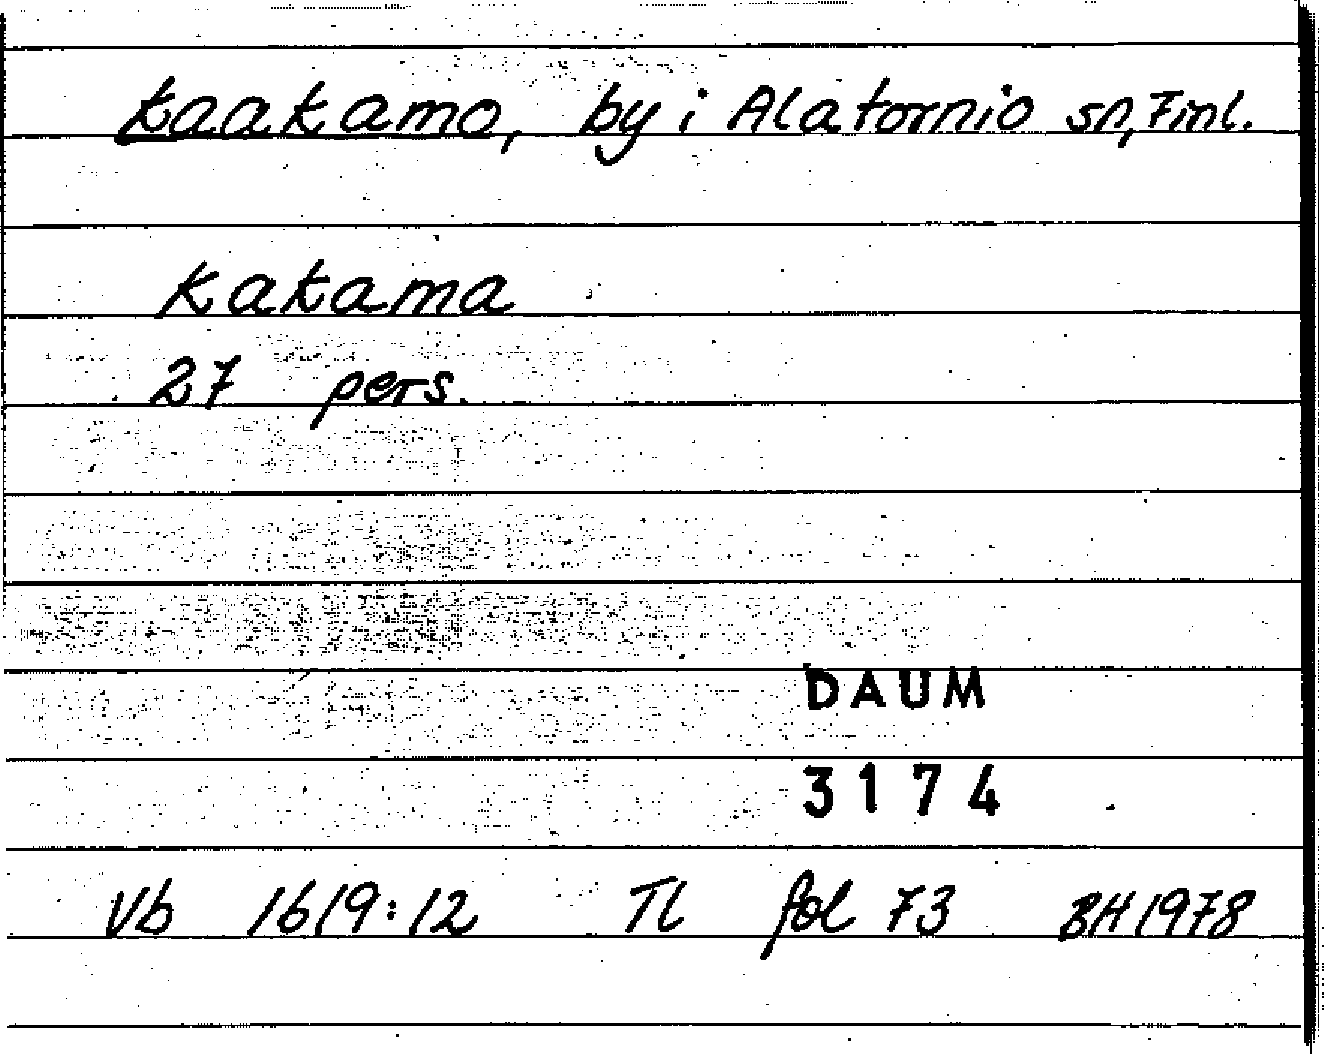 Kaakamo, by i Alatornio sn, Finl.
Kakama
27 pers.
DAUM
3174
Vb 1619:12 Tl fol 73 BH 1978